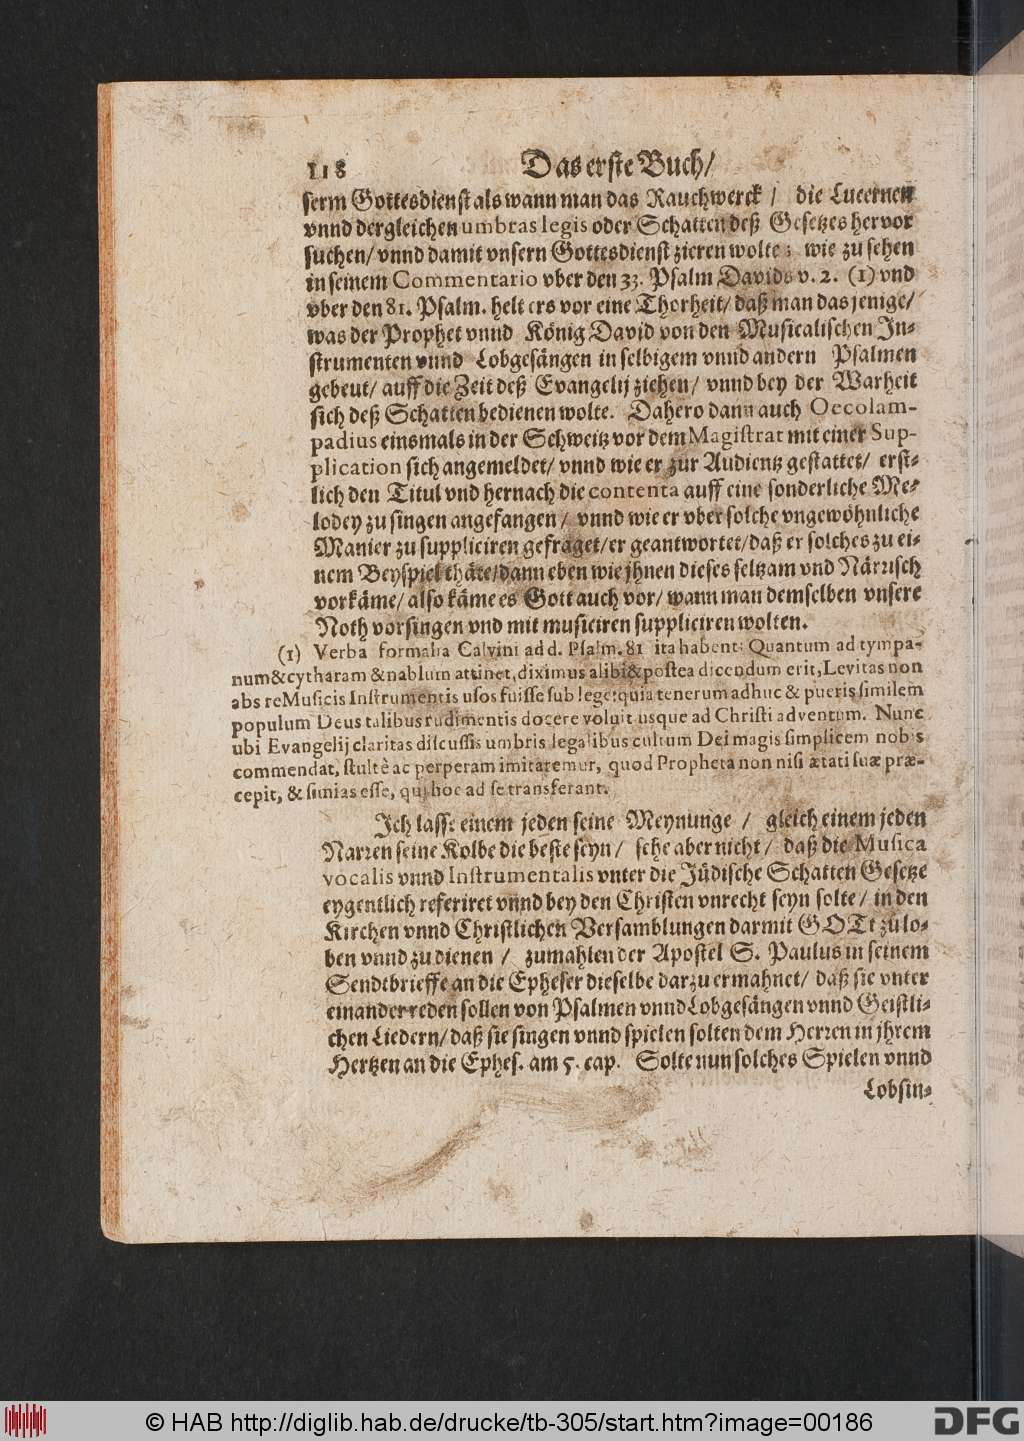 118 Das erste Buch/
serm Gottesdienst als wann man das Rauchwerck / die Lucernen
vnnd dergleichen umbras legis oder Schatten deß Gesetzes hervor
suchen/ vnnd damit vnsern Gottesdienst zieren wolte; wie zu sehen
in seinem Commentario vber den 33. Psalm Davids v. 2. (1) vnd
vber den 81. Psalm. helt ers vor eine Thorheit/ daß man das jenige/
was der Prophet vnnd König David von den Musicalischen In-
strumenten vnnd Lobgesängen in selbigem vnnd andern Psalmen
gebeut/ auff die Zeit deß Evangelij ziehen/ vnnd bey der Warheit
sich deß Schatten bedienen wolte. Dahero dann auch Oecolam-
padius einsmals in der Schweitz vor dem Magistrat mit einer Sup-
plication sich angemeldet/ vnnd wie er zur Audientz gestattet/ erst-
lich den Titul vnd hernach die contenta auff eine sonderliche Me-
lodey zu singen angefangen/ vnnd wie er vber solche vngewöhnliche
Manier zu suppliciren gefraget/ er geantwortet/ daß er solches zu ei-
nem Beyspiel thäte/ dann eben wie jhnen dieses seltzam vnd Närrisch
vorkäme/ also käme es Gott auch vor/ wann man demselben vnsere
Noth vorsingen vnd mit musiciren suppliciren wolten.
(1) Verba formalia Calvini ad d. Psalm. 81 ita habent: Quantum ad tympa-
num & cytharam & nablum attinet, diximus alibi & postea dicendum erit, Levitas non
abs re Musicis Instrumentis usos fuisse sub lege: quia tenerum adhuc & pueris similem
populum Deus talibus rudimentis docere voluit usque ad Christi adventum. Nunc
ubi Evangelij claritas discussis umbris legalibus cultum Dei magis simplicem nobis
commendat, stultè ac perperam imitaremur, quod Propheta non nisi ætati suæ præ-
cepit, & simias esse, qui hoc ad se transferant.
Ich lasse einem jeden seine Meynunge / gleich einem jeden
Narren seine Kolbe die beste seyn/ sehe aber nicht/ daß die Musica
vocalis vnnd Instrumentalis vnter die Jüdische Schatten Gesetze
eygentlich referiret vnnd bey den Christen vnrecht seyn solte/ in den
Kirchen vnnd Christlichen Versamblungen darmit GOTt zu lo-
ben vnnd zu dienen / zumahlen der Apostel S. Paulus in seinem
Sendtbrieffe an die Epheser dieselbe darzu ermahnet/ daß sie vnter
einander reden sollen von Psalmen vnnd Lobgesängen vnnd Geistli-
chen Liedern/ daß sie singen vnnd spielen solten dem Herren in jhrem
Hertzen an die Ephes. am 5. cap. Solte nun solches Spielen vnnd
Lobsin-
© HAB http://diglib.hab.de/drucke/tb-305/start.htm?image=00186 DFG